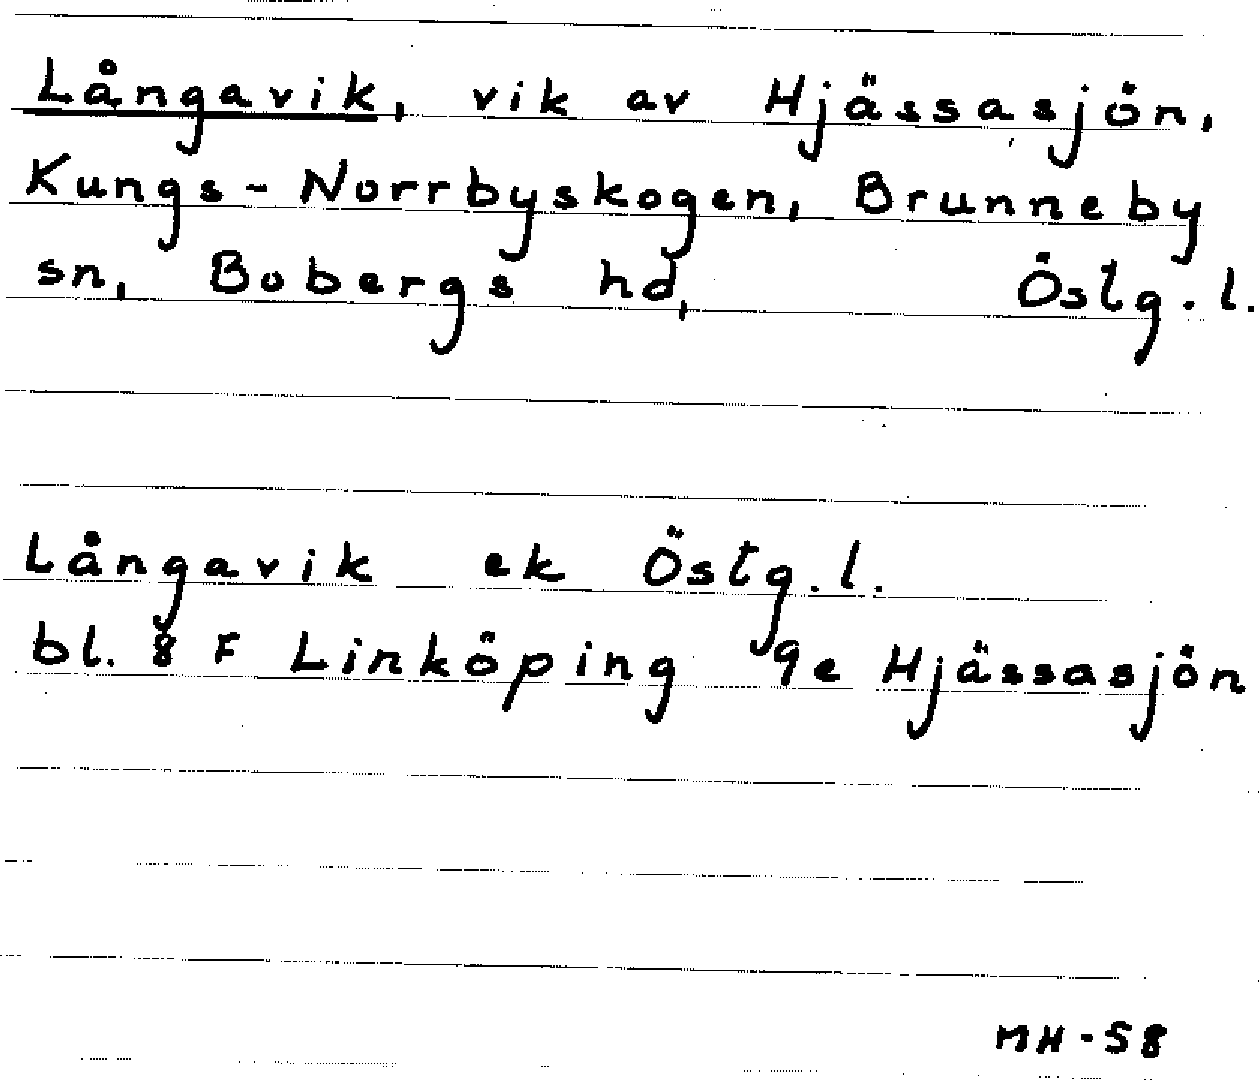 Långavik, vik av Hjässasjön,
Kungs-Norrbyskogen, Brunneby
sn, Bobergs hd, Östg.l.
Långavik ek Östg.l.
bl. 8 F Linköping 9e Hjässasjön
MH-58